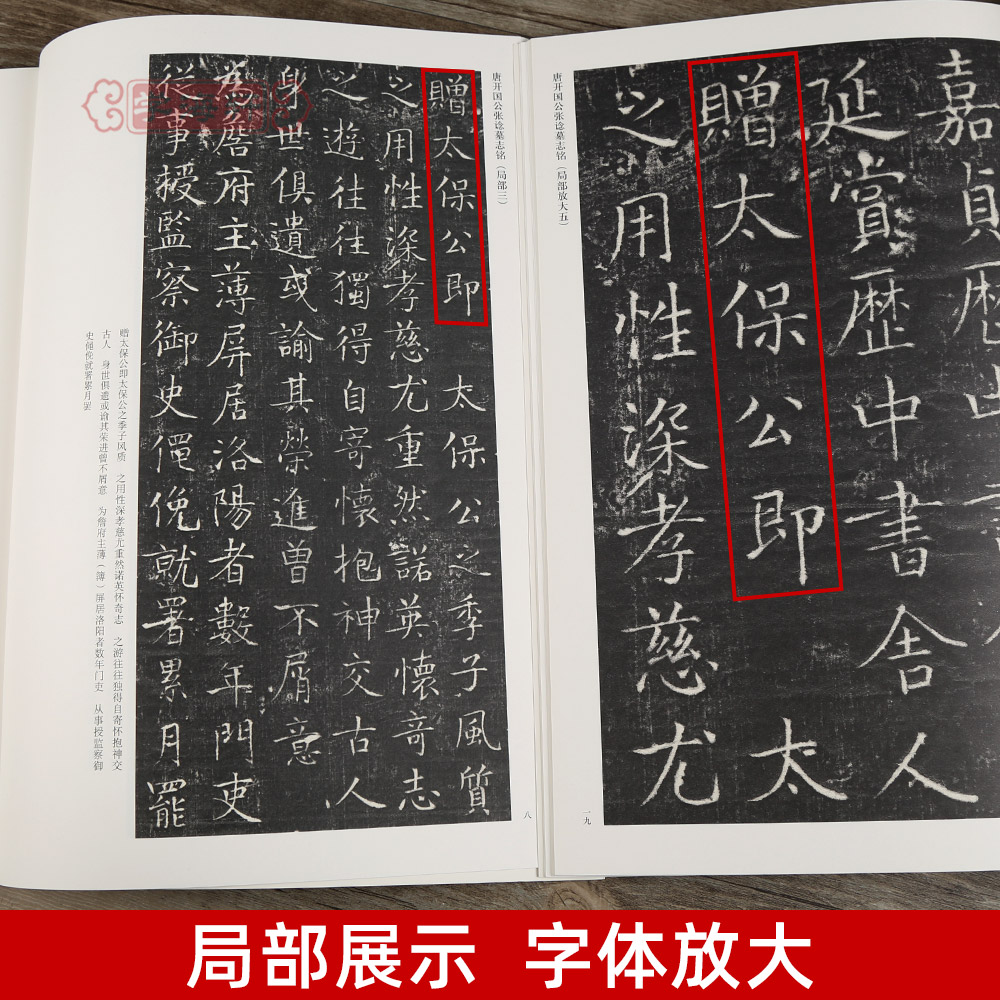 唐开国公张谂墓志铭(局部三)
贈太保公即 太保公之季子風質
之用性深孝慈尤重然諾英懷奇志
之遊往往獨得自寄懷抱神交古人
身世俱遺或諭其榮進曾不屑意
為詹府主薄屏居洛陽者數年門吏
從事授監察御史僶俛就署累月罷
赠太保公即太保公之季子风质 之用性深孝慈尤重然诺英怀奇志 之游往往独得自寄怀抱神交
古人 身世俱遗或谕其荣进曾不屑意 为詹府主薄(簿)屏居洛阳者数年门吏 从事授监察御
史僶俛就署累月罢
八
嘉貞歷
延賞歷中書舍人
贈太保公即 太
之用性深孝慈尤
唐开国公张谂墓志铭(局部放大五)
一九
局部展示 字体放大